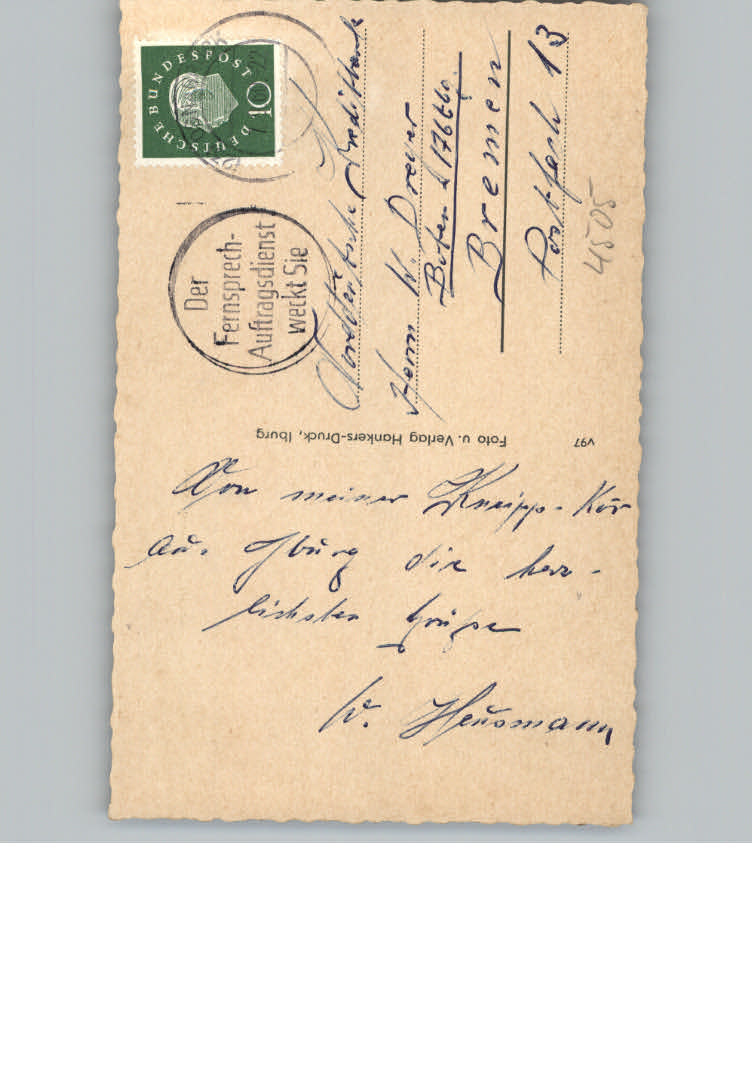 Von meiner Kneipp-Kur
aus Iburg die herz-
lichsten Grüße
W. Heusmann
V97
Foto u. Verlag Hankers-Druck, Iburg
DEUTSCHE BUNDESPOST
10
Der
Fernsprech-
Auftragsdienst
weckt Sie
Norddeutsche Kreditbank
Herrn W. Dreyer
Boten
Bremen
Postfach 13
4505